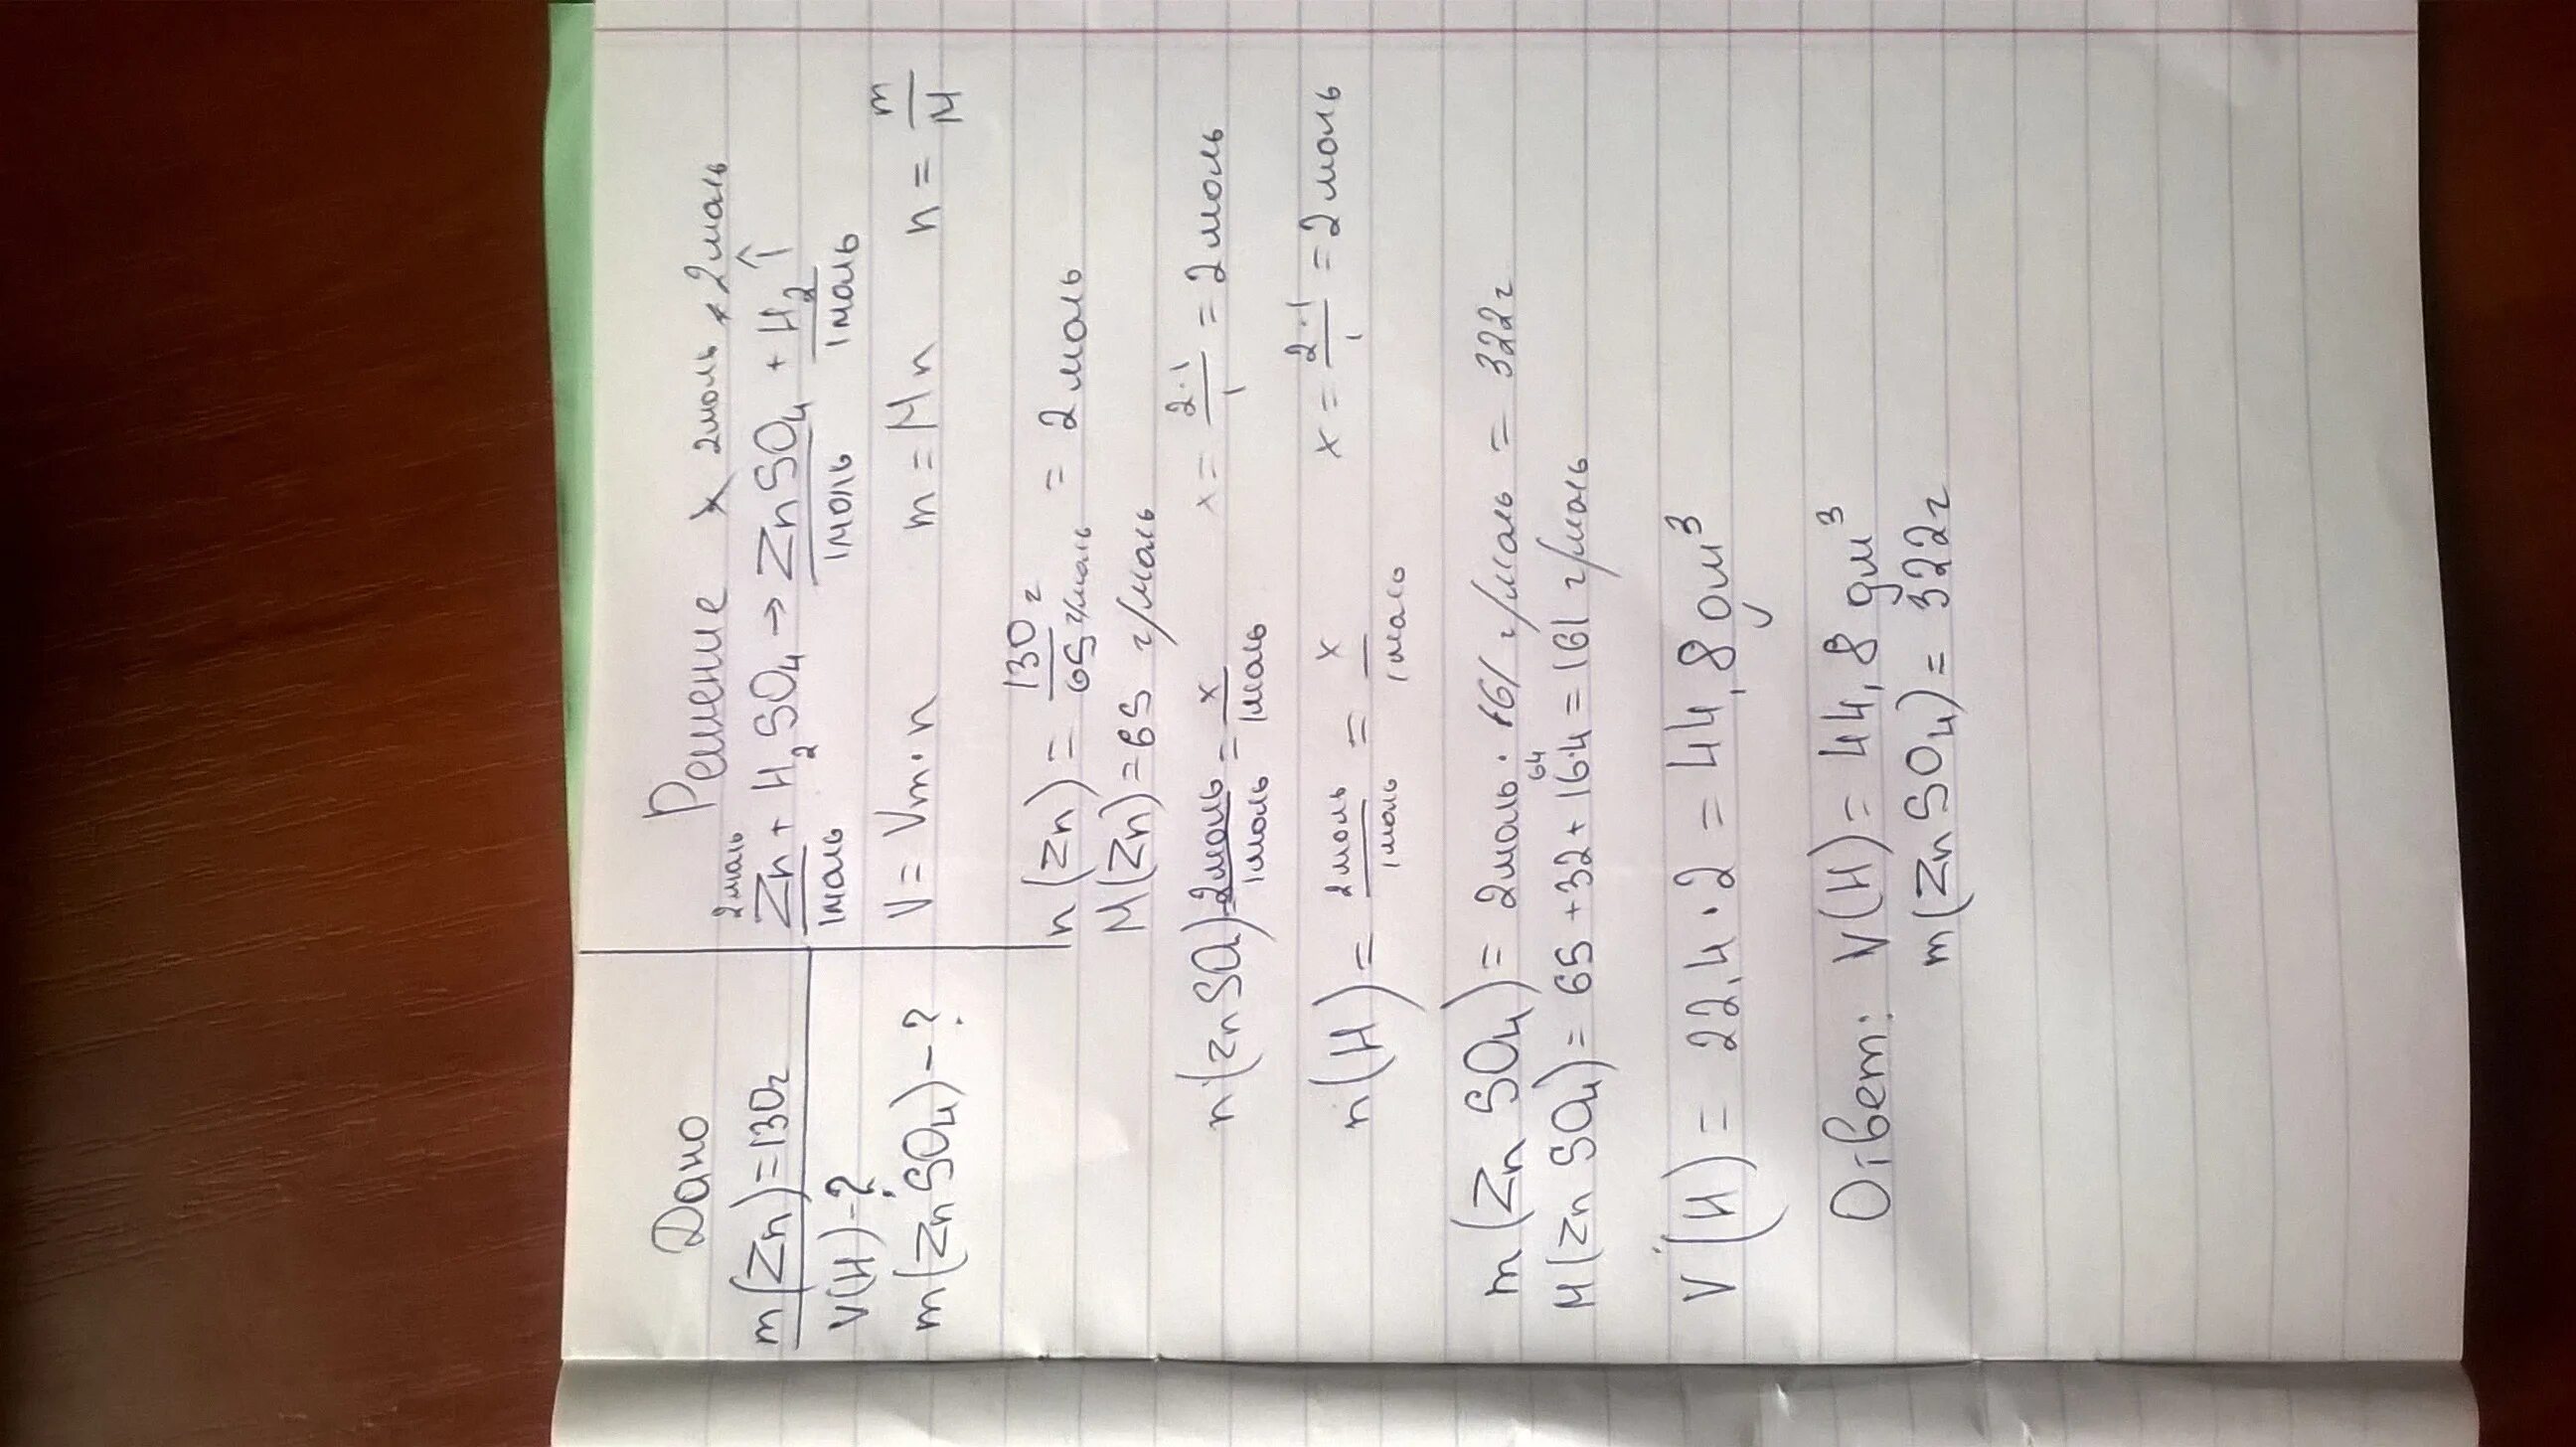 Дано
m(Zn)=130г
V(H)-?
m(ZnSO4)-?
Решение
2моль x 2моль x 2моль
Zn + H2SO4 → ZnSO4 + H2↑
1моль 1моль 1моль
V = Vm·n m = Mn n = m/M
n(Zn) = 130г/65г/моль = 2моль
M(Zn)=65 г/моль
n(ZnSO4) 2моль/1моль = x/1моль x = 2·1/1 = 2моль
n(H) = 2моль/1моль = x/1моль x = 2·1/1 = 2моль
m(ZnSO4) = 2моль · 161 г/моль = 322г
64
M(ZnSO4) = 65+32+16·4 = 161 г/моль
V(H) = 22,4·2 = 44,8дм³
Ответ: V(H) = 44,8дм³
m(ZnSO4) = 322г